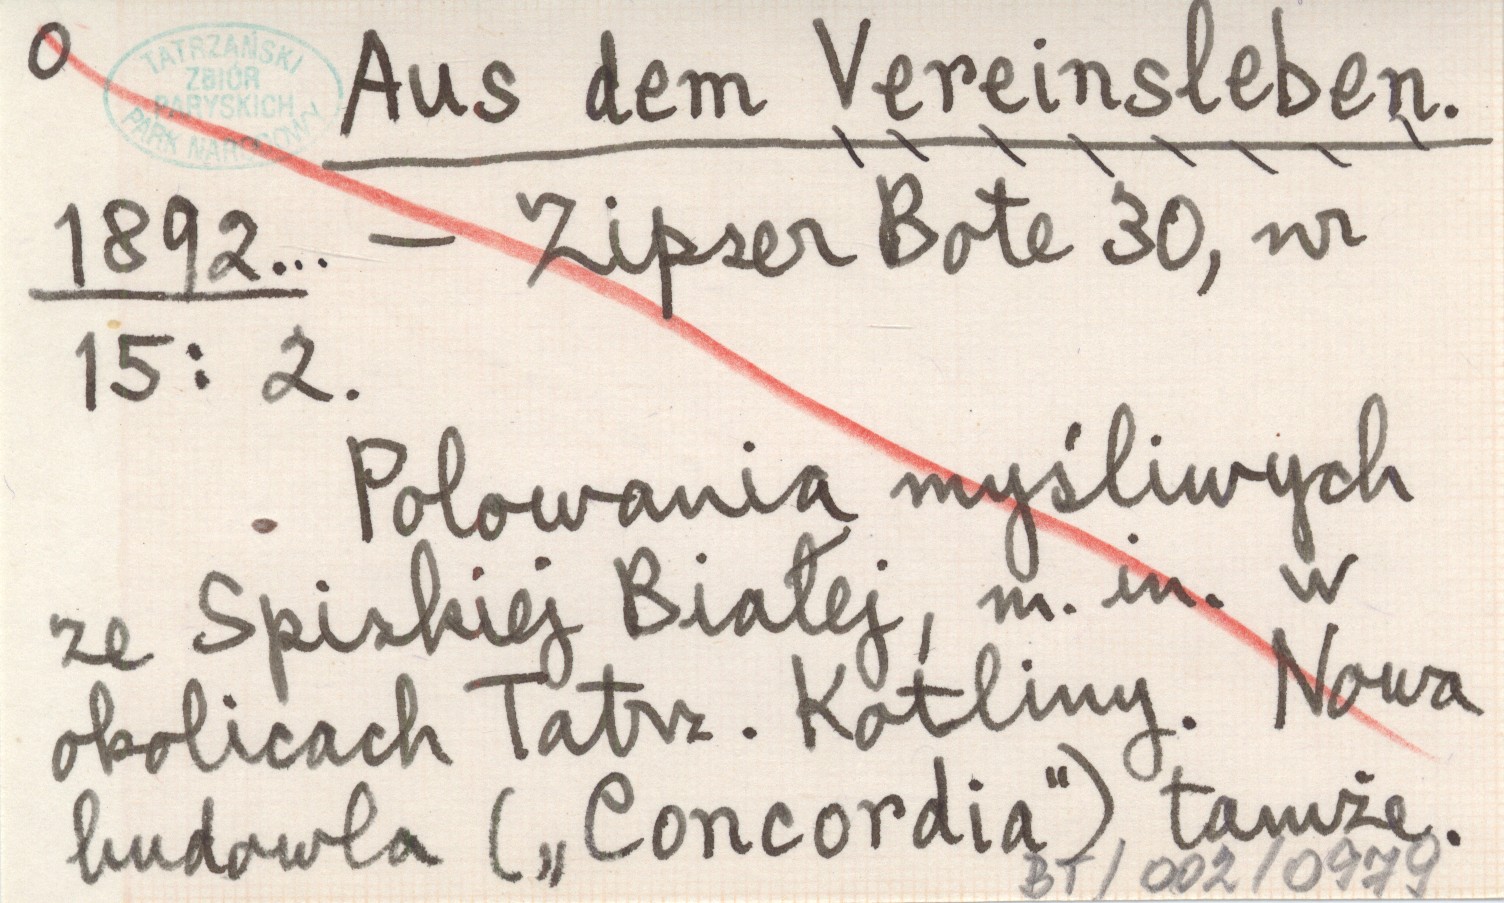 O
TATRZAŃSKI
ZBIÓR
PARYSKICH
PARK NARODOWY
Aus dem Vereinsleben.
1892... — Zipser Bote 30, nr
15: 2.
Polowania myśliwych
ze Spiskiej Białej, m. in. w
okolicach Tatrz. Kotliny. Nowa
budowla („Concordia") tamże.
BT/002/0979